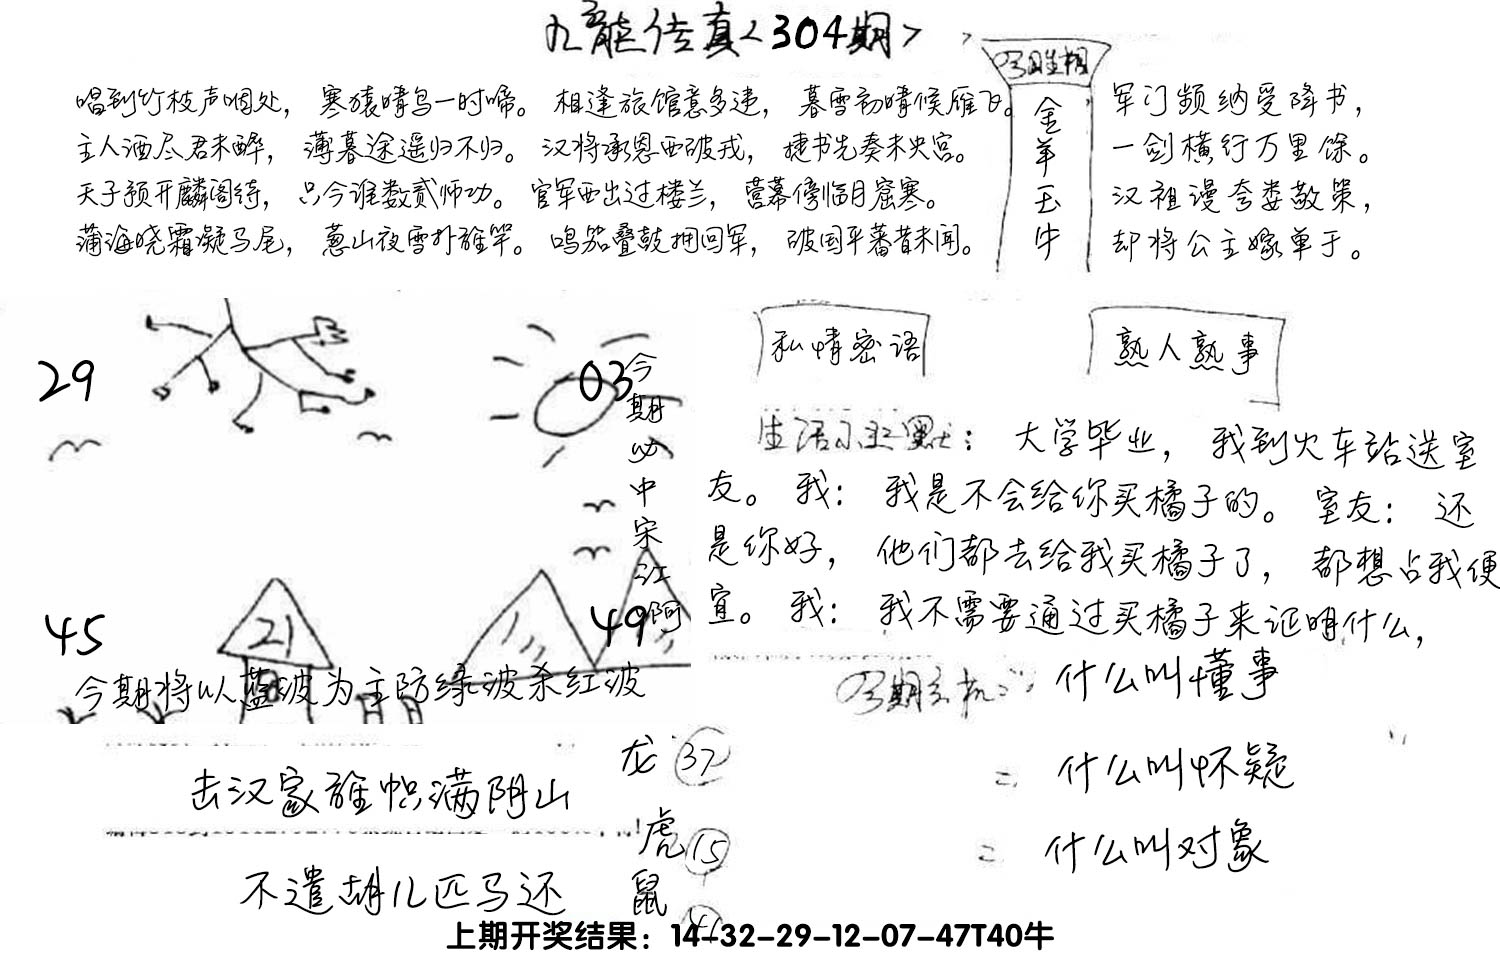 九龍传真<304期>
今期生相
金羊玉牛
唱到竹枝声咽处，寒猿晴鸟一时啼。相逢旅馆意多违，暮雪初晴候雁飞。
主人酒尽君未醉，薄暮途遥归不归。汉将承恩西破戎，捷书先奏未央宫。
天子预开麟阁待，只今谁数贰师功。官军西出过楼兰，营幕傍临月窟寒。
蒲海晓霜凝马尾，葱山夜雪扑旌竿。鸣笳叠鼓拥回军，破国平蕃昔未闻。
军门频纳受降书，
一剑横行万里馀。
汉祖谩夸娄敬策，
却将公主嫁单于。
29
03
45
21
49
今期必中宋江啊
今期将以蓝波为主防绿波杀红波
私情密语
熟人熟事
生活小幽默：大学毕业，我到火车站送室
友。我：我是不会给你买橘子的。室友：还
是你好，他们都去给我买橘子了，都想占我便
宜。我：我不需要通过买橘子来证明什么，
今期玄机：
什么叫懂事
= 什么叫怀疑
= 什么叫对象
击汉家旌帜满阴山
不遣胡儿匹马还
龙 37
虎 15
鼠
上期开奖结果：14-32-29-12-07-47T40牛